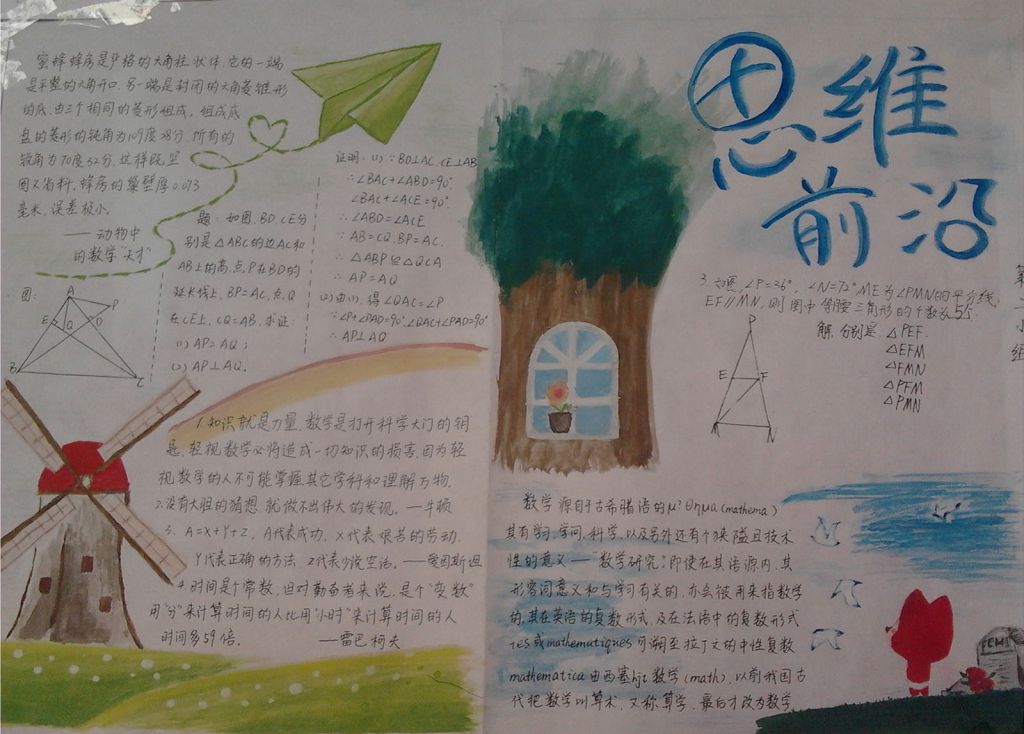 思维
前沿
蜜蜂蜂房是严格的六角柱状体,它的一端
是平整的六角开口,另一端是封闭的六角菱锥形
的底,由三个相同的菱形组成,组成底
盘的菱形的钝角为109度28分,所有的
锐角为70度32分,这样既坚
固又省料,蜂房的巢壁厚0.073
毫米,误差极小。
——动物中
的数学"天才"
图:
A
P
E
D
Q
B
C
题:如图,BD、CE分
别是△ABC的边AC和
AB上的高,点P在BD的
延长线上,BP=AC,点Q
在CE上,CQ=AB,求证:
(1) AP=AQ;
(2) AP⊥AQ.
证明:(1) ∵BD⊥AC,CE⊥AB
∴∠BAC+∠ABD=90°
∠BAC+∠ACE=90°
∴∠ABD=∠ACE
∵AB=CQ,BP=AC.
∴△ABP≌△QCA
∴AP=AQ
(2)由(1),得∠QAC=∠P
∵∠P+∠PAD=90°,∠QAC+∠PAD=90°
∴AP⊥AQ
1.知识就是力量,数学是打开科学大门的钥
匙,轻视数学必将造成一切知识的损害,因为轻
视数学的人不可能掌握其它学科和理解万物.
2.没有大胆的猜想,就做不出伟大的发现。—牛顿
3. A=X+Y+Z, A代表成功, X代表艰苦的劳动.
Y代表正确的方法 Z代表少说空话。——爱因斯坦
4.时间是个常数,但对勤奋者来说,是个"变数"
用"分"来计算时间的人比用"小时"来计算时间的人
时间多59倍.
——雷巴柯夫
3.如图,∠P=36°,∠N=72°,ME为∠PMN的平分线,
EF//MN,则图中等腰三角形的个数为5.
解:分别是 △PEF.
△EFM
△FMN
△PFM
△PMN
P
E
F
M
N
第
二
小
组
数学源自古希腊语的μ?θημα(mathema)
其有学习,学问,科学,以及另外还有个狭隘且技术
性的意义——"数学研究".即使在其语源内,其
形容词意义和与学习有关的,亦会被用来指数学
的,其在英语的复数形式,及在法语中的复数形式
+es或mathématiques可溯至拉丁文的中性复数
mathematica由西塞hjt数学(math),以前我国古
代把数学叫算术,又称算学,最后才改为数学.